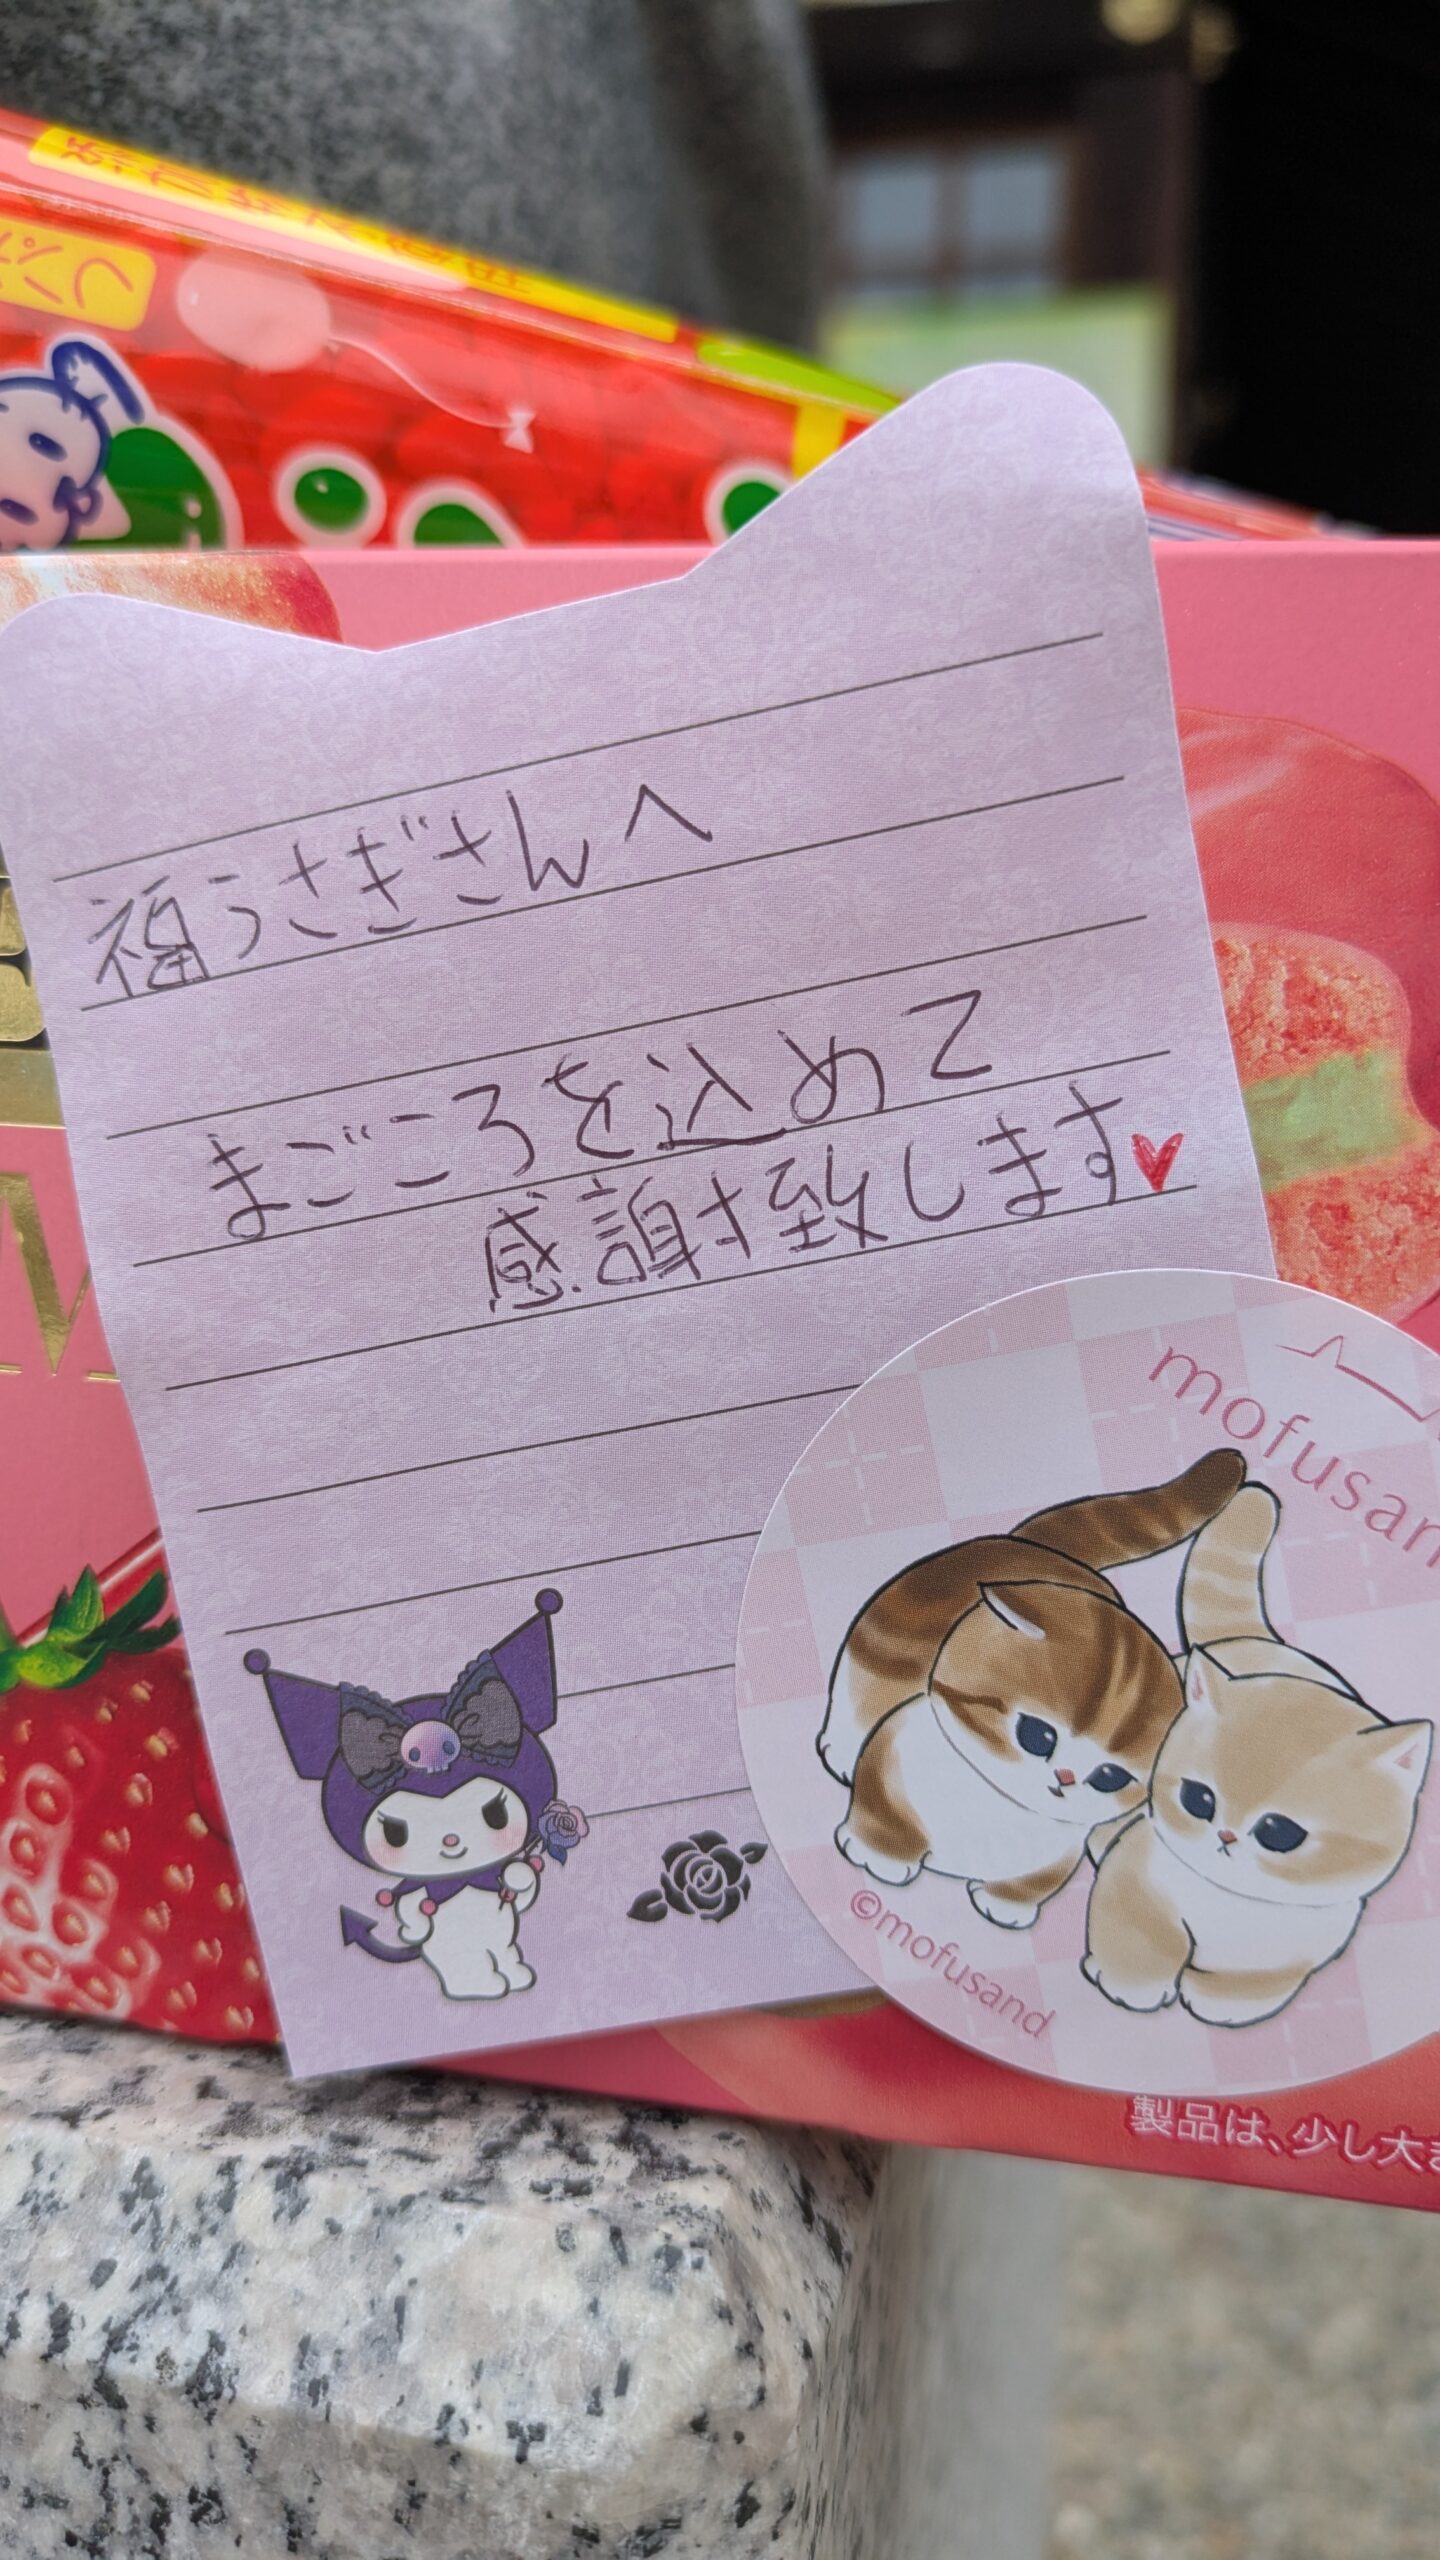 福うさぎさんへ
まごころを込めて
感謝致します
mofusan
©mofusand
製品は、少し大き